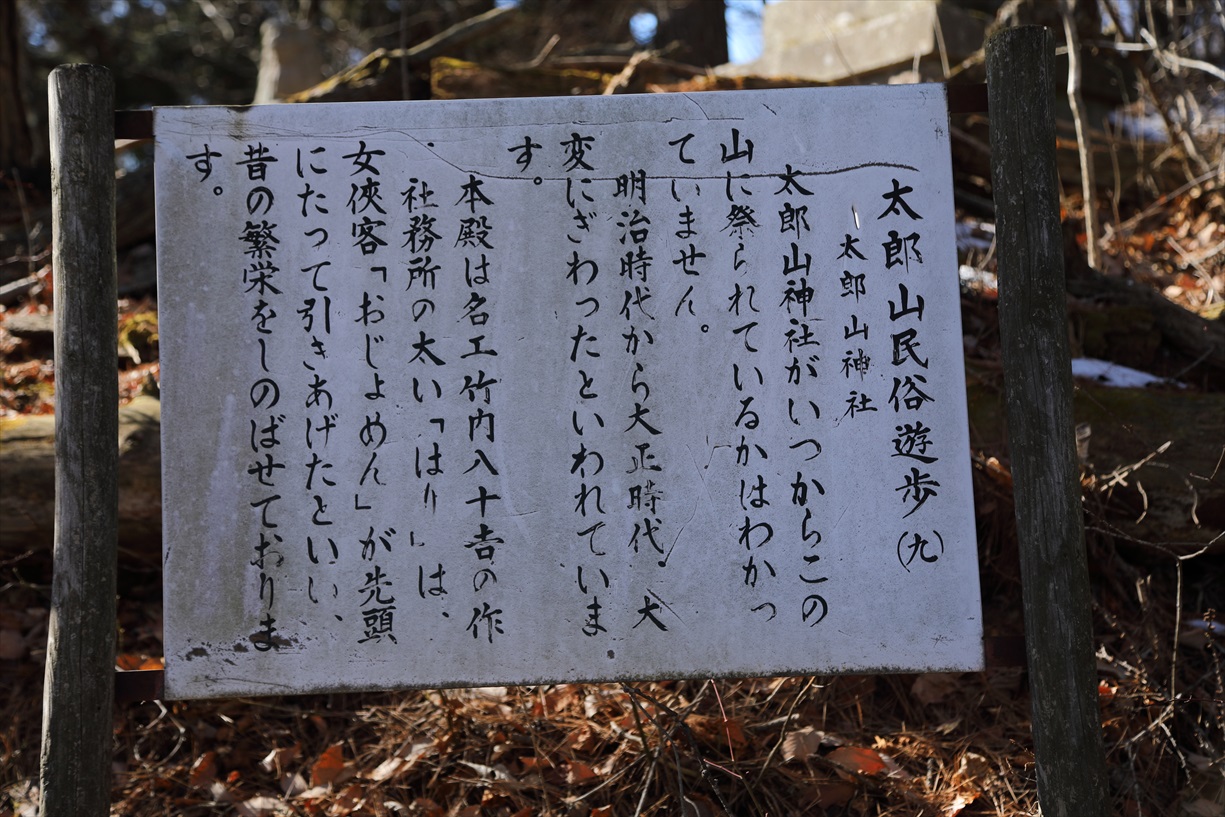 太郎山民俗遊歩(九)
太郎山神社
太郎山神社がいつからこの
山に祭られているかはわかっ
ていません。
明治時代から大正時代、大
変にぎわったといわれていま
す。
本殿は名工竹内八十吉の作
社務所の太い「はり」は、
女侠客「おじょめん」が先頭
にたって引きあげたといい、
昔の繁栄をしのばせておりま
す。